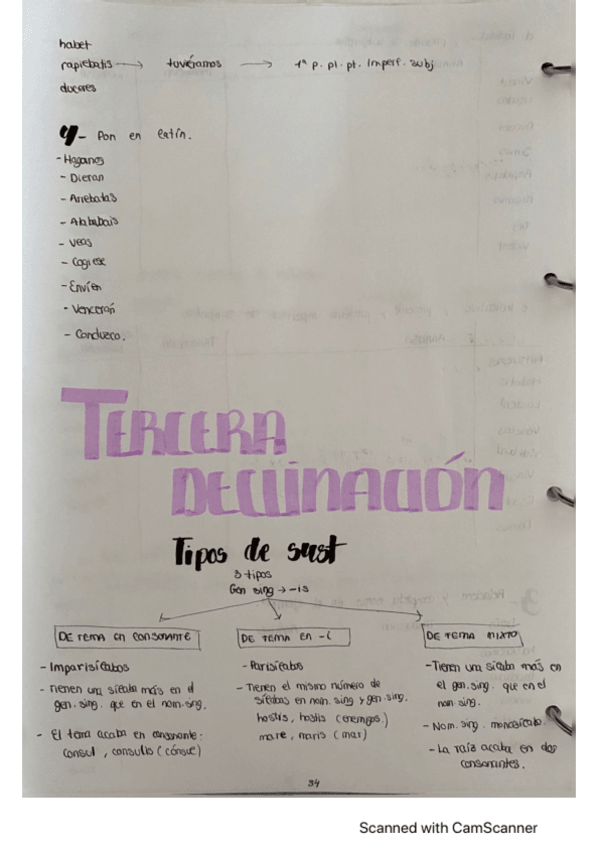 habet
rapiebatis → tuviéramos → 1ª p. pl. pt. Imperf. subj
duceres
4- Pon en latín.
- Hagamos
- Dieran
- Arrebatas
- Alababais
- Veas
- Cogiese
- Envíen
- Vencerán
- Conduzco.
TERCERA
DECLINACIÓN
Tipos de sust
3 tipos
Gen sing → -is
DE TEMA en consonante
- Imparisílabos
- Tienen una sílaba más en el
gen. sing. que en el nom. sing.
- El tema acaba en consonante:
consul, consulis (cónsul)
DE TEMA en -i
- Parisílabos
- Tienen el mismo número de
sílabas en nom. sing y gen. sing.
hostis, hostis (enemigo)
mare, maris (mar)
DE TEMA MIXTO
- Tienen una sílaba más en
el gen. sing. que en el
nom. sing.
- Nom. sing. monosílabo
- La raíz acaba en dos
consonantes.
34
Scanned with CamScanner